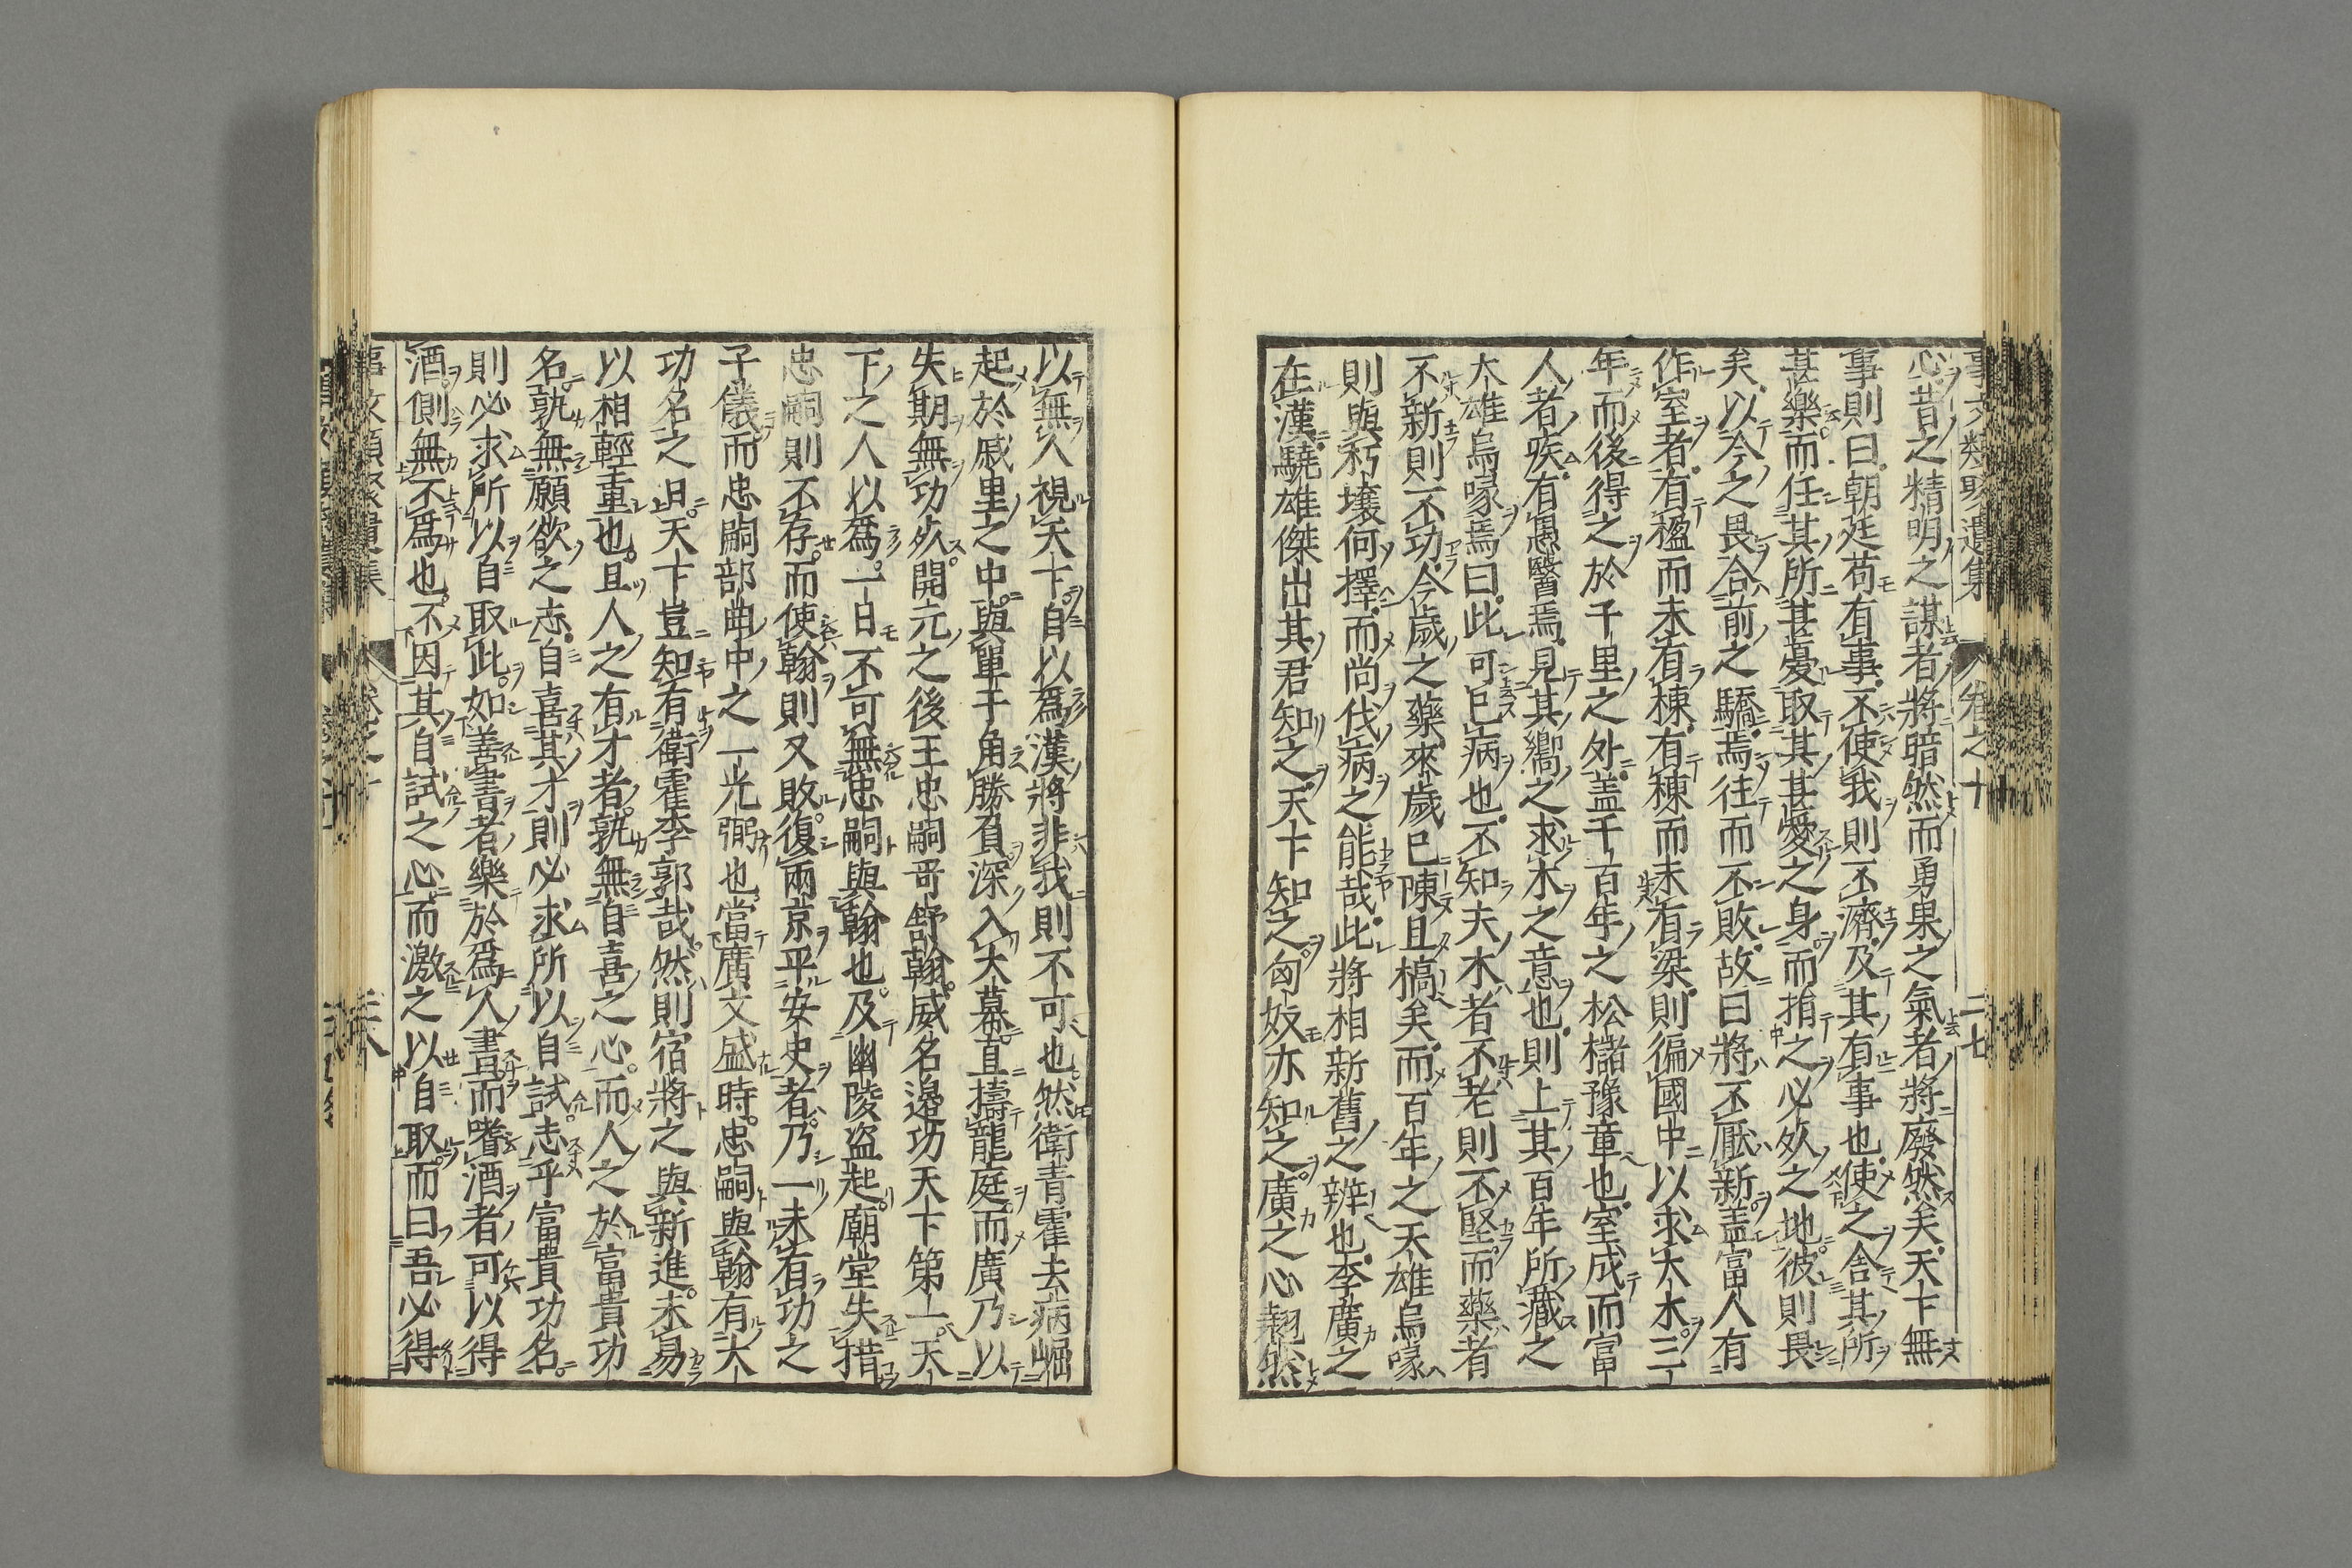 事文類聚遺集 卷之十 二十七
心昔之精明之謀者將暗然而勇果之氣者將廢然矣天下無
事則曰朝廷苟有事不使我則不濟及其有事也使之舍其所
甚樂而任其所甚憂取其甚愛之身而捐之必死之地彼則畏
矣以今之畏合前之驕焉往而不敗故曰將不厭新蓋富人有
作室者有楹而未有棟有棟而未有梁則徧國中以求大木三
年而後得之於千里之外蓋千百年之松櫧豫章也室成而富
人者疾有愚醫焉見其嚮之求木之意也則上其百年所藏之
大雄烏喙焉曰此可已病也不知夫木者不老則不堅而藥者
不新則不功今歲之藥來歲已陳且槁矣而百年之天雄烏喙
則與朽壤何擇而尚伐病之能哉此將相新舊之辨也李廣之
在漢驍雄傑出其君知之天下知之匈奴亦知之廣之心翹然
以無人視天下自以爲漢將非我則不可也然衛青霍去病崛
起於戚里之中與單于角勝負深入大幕直擣龍庭而廣乃以
失期無功死開元之後王忠嗣哥舒翰威名邊功天下第一天
下之人以爲一日不可無忠嗣與翰也及幽陵盜起廟堂失措
忠嗣則不存而使翰則又敗復兩京平安史者乃一未有功之
子儀而忠嗣部曲中之一光弼也當廣文盛時忠嗣與翰有大
功名之日天下豈知有衛霍李郭哉然則宿將之與新進未易
以相輕重也且人之有才者孰無自喜之心而人之於富貴功
名孰無願欲之志自喜其才則必求所以自試志乎富貴功名
則必求所以自取此如善書者樂於爲人書而嗜酒者可以得
酒側無不爲也不因其自試之心而激之以自取而曰吾必得